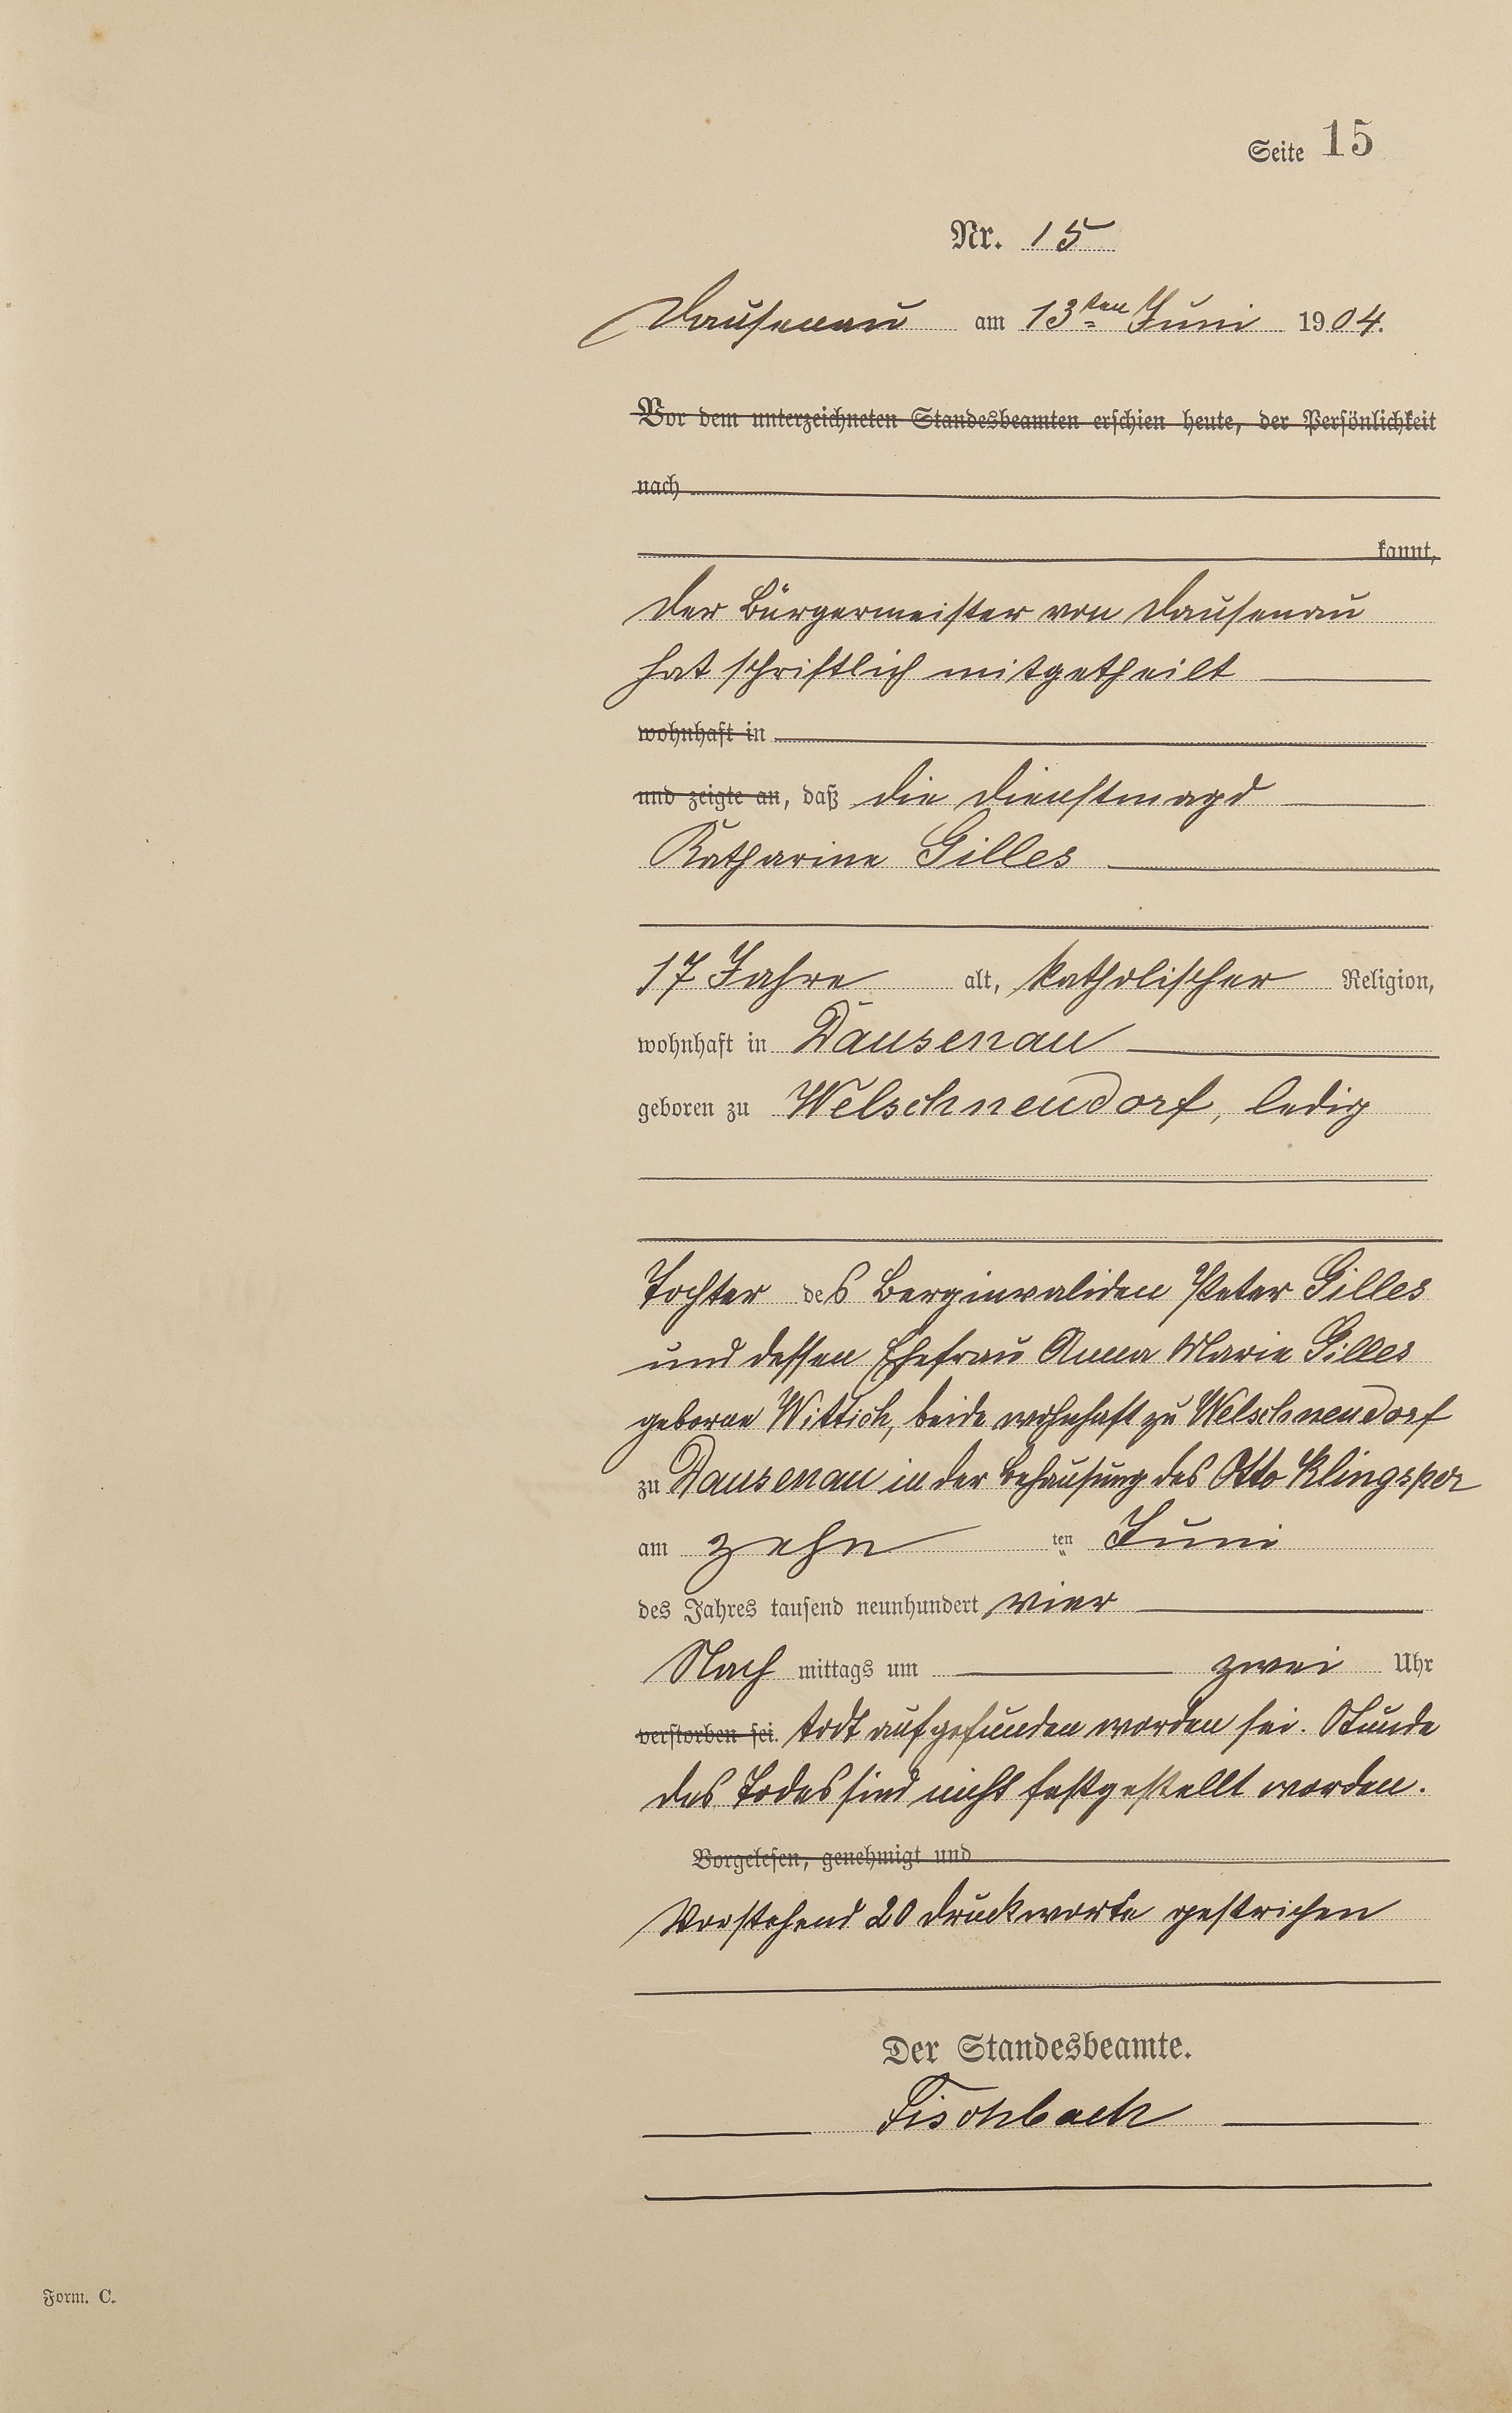 Seite 15
Nr. 15
Dausenau am 13ten Juni 1904.
Vor dem unterzeichneten Standesbeamten erschien heute, der Persönlichkeit
nach
kannt,
Der Bürgermeister von Dausenau
hat schriftlich mitgetheilt
wohnhaft in
und zeigte an, daß die Dienstmagd
Katharine Gilles
17 Jahre alt, katholischer Religion,
wohnhaft in Dausenau
geboren zu Welschneudorf, ledig
Tochter des Berginvaliden Peter Gilles
und dessen Ehefrau Anna Marie Gilles
geborne Wittich, beide wohnhaft zu Welschneudorf
zu Dausenau in der Behausung des Otto Klingspor
am zehn ten Juni
des Jahres tausend neunhundert vier
Nach mittags um zwei Uhr
verstorben sei. todt aufgefunden worden sei. Stunde
des Todes sind nicht festgestellt worden.
Vorgelesen, genehmigt und
Vorstehend 20 Druckworte gestrichen
Der Standesbeamte.
Fischbach
Form. C.